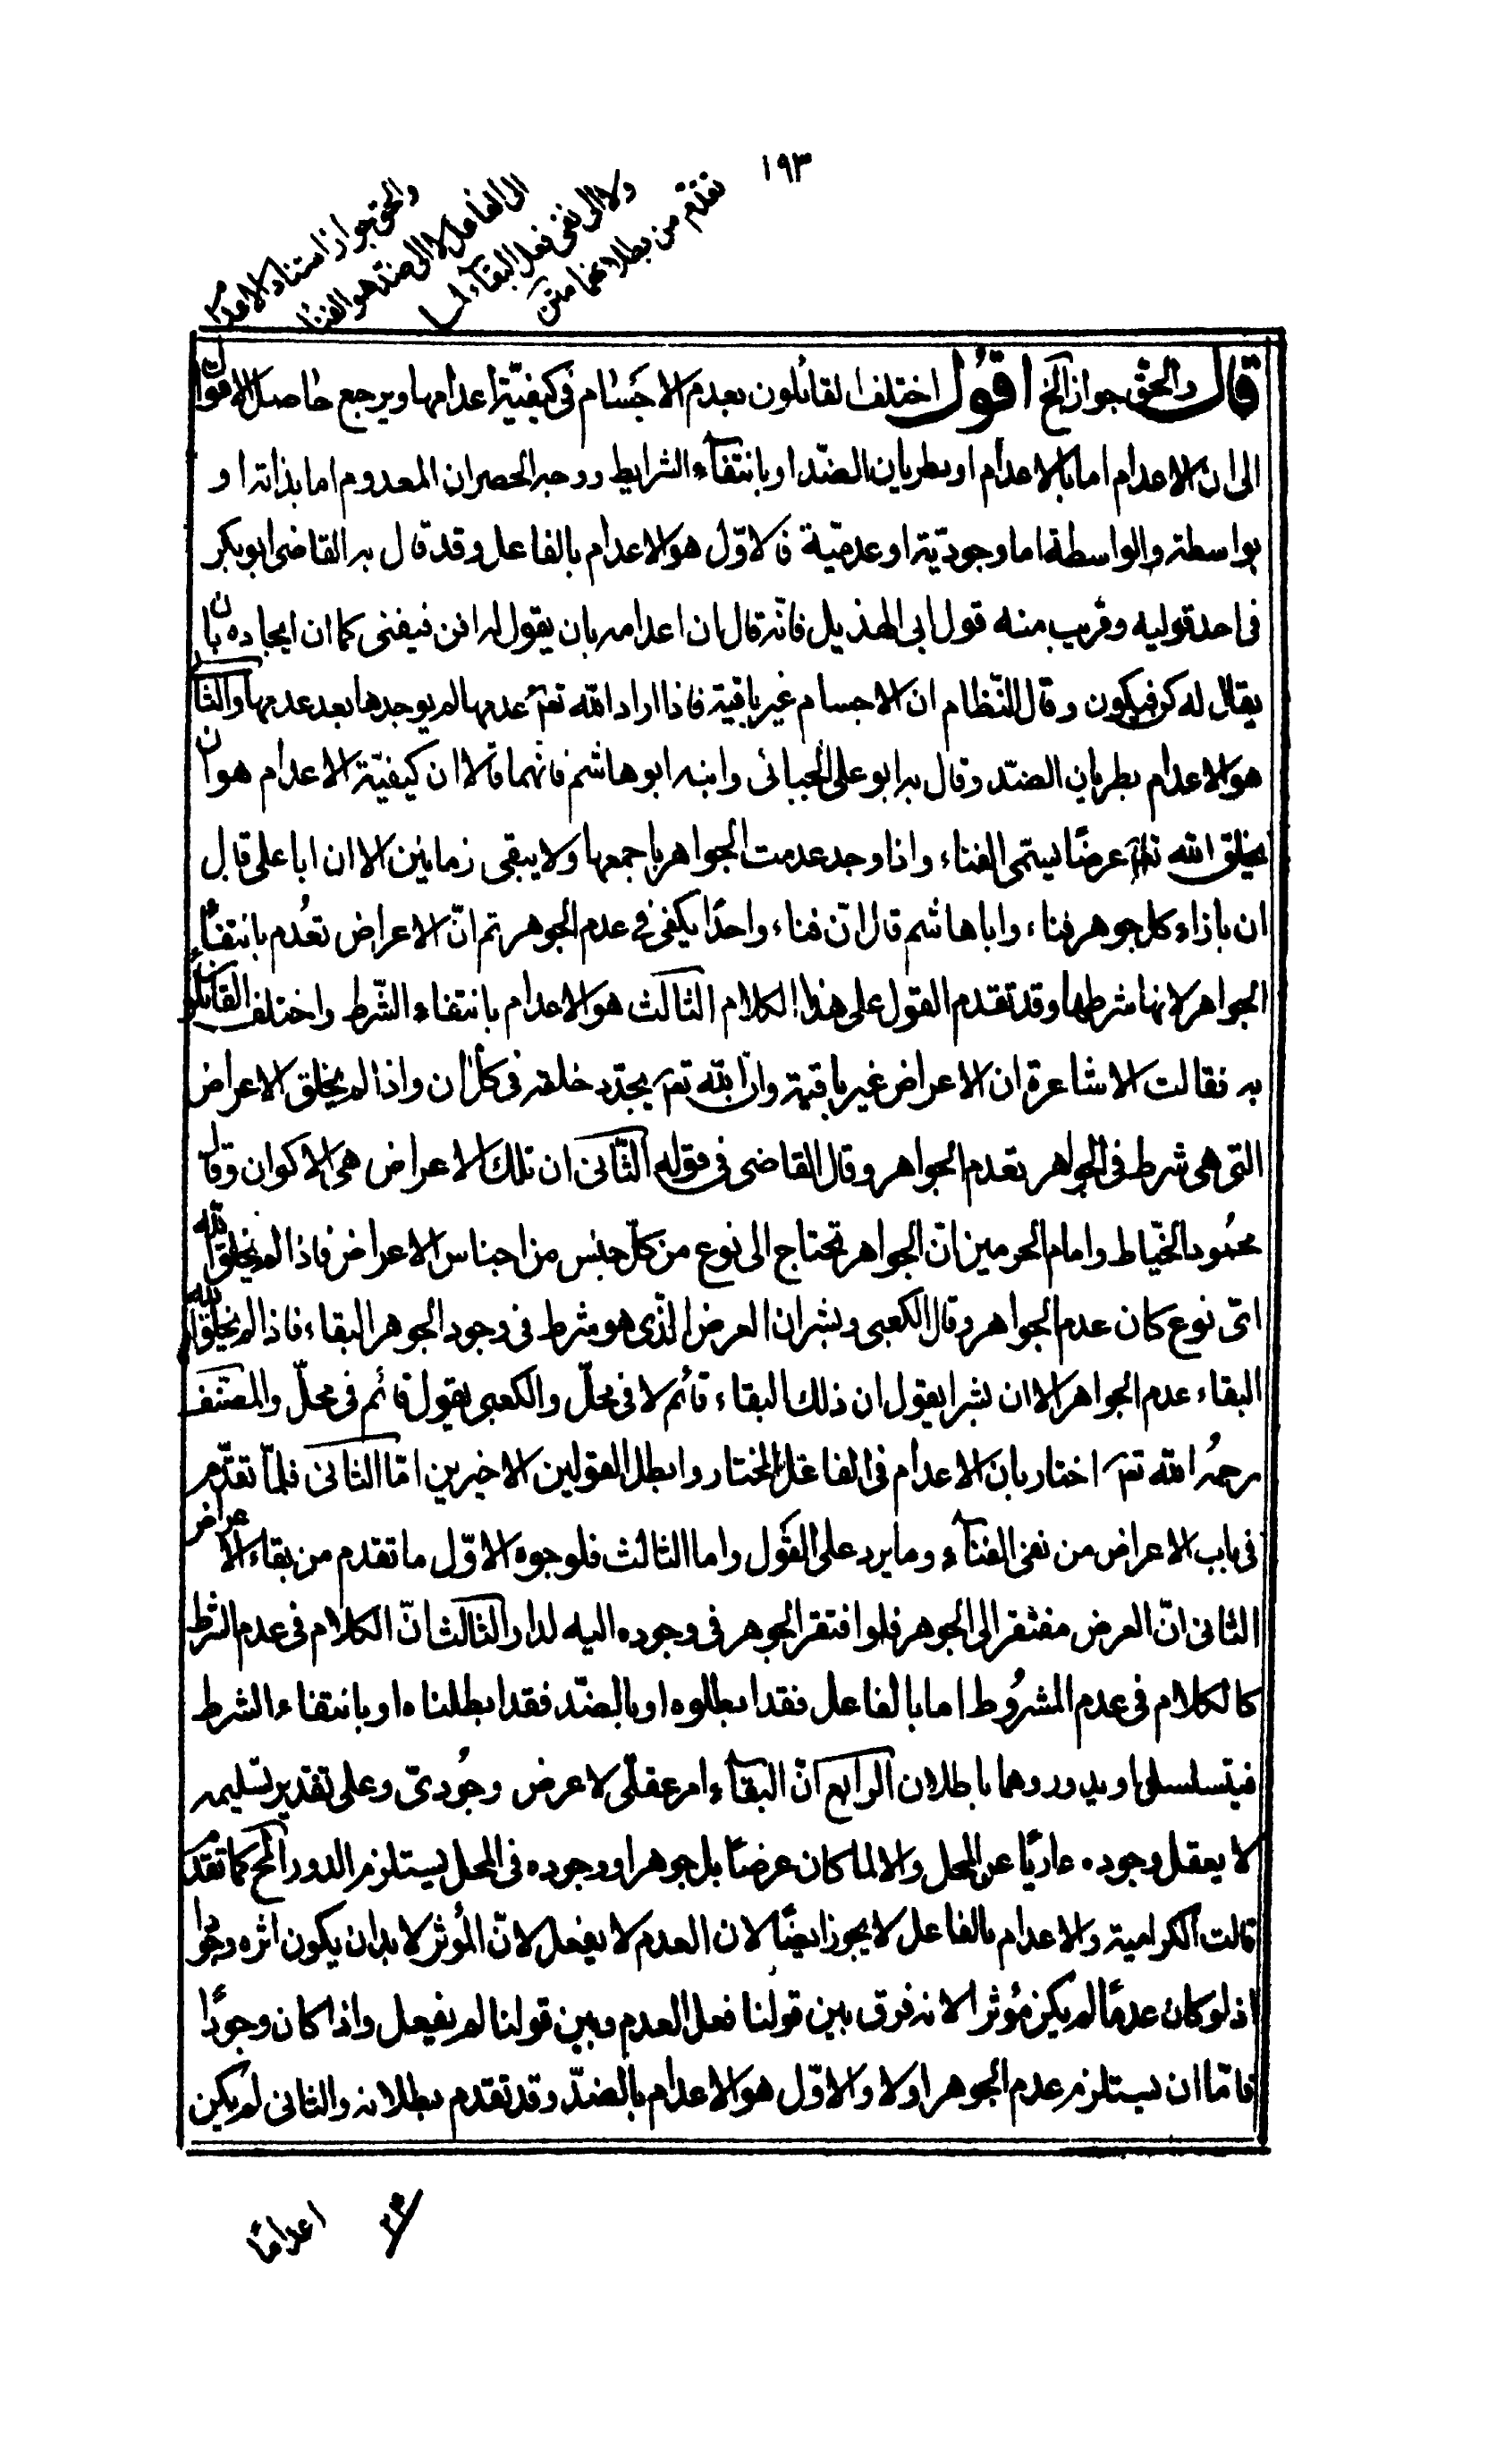 ١٩٣
والحق جواز استناد الاعدام
الى الفاعل لا الى ضد هو الفناء
ولا الى نفى فعل البقاء لما
تقدم من بطلانهما متن
قال والحق جواز الخ اقول اختلف القائلون بعدم الاجسام فى كيفيّة اعدامها ويرجع حاصل الاقوال
الى ان الاعدام اما بالاعدام او بطريان الضدّ او بانتفاء الشرايط ووجه الحصر ان المعدوم اما بذاته او
بواسطة والواسطة اما وجوديّة او عدميّة فالاوّل هو الاعدام بالفاعل وقد قال به القاضى ابو بكر
فى احد قوليه وقريب منه قول ابى الهذيل فانّه قال ان اعدامه بان يقول له افن فيفنى كما ان ايجاده بان
يقال له كن فيكون وقال النّظام ان الاجسام غير باقية فاذا اراد الله تعم عدمها لم يوجدها بعد عدمها والثانى
هو الاعدام بطريان الضدّ وقال به ابو على الجبائى وابنه ابو هاشم فانّهما قالا ان كيفيّة الاعدام هو ان
يخلق الله تعم عرضًا يسمّى الفناء واذا وجد عدمت الجواهر باجمعها ولا يبقى زمانين الا ان ابا على قال
ان بازاء كل جوهر فناء وابا هاشم قال انّ فناء واحدًا يكفى فى عدم الجوهر ثم انّ الاعراض تعُدم بانتفاء
الجواهر لانها شرطها وقد تقدم القول على هذا الكلام الثالث هو الاعدام بانتفاء الشّرط واختلف القائلون
به فقالت الاشاعرة ان الاعراض غير باقية وان الله تعم يجدّد خلقه فى كل ان واذا لم يخلق الاعراض
التى هى شرط فى الجواهر تعدم الجواهر وقال القاضى فى قوله الثّانى ان تلك الاعراض هى الاكوان وقال
محمُود الخيّاط وامام الحرمين انّ الجواهر تحتاج الى نوع من كلّ جنس من اجناس الاعراض فاذا لم يخلق الله
اىّ نوع كان عدم الجواهر وقال الكعبى وبشر ان العرض الّذى هو شرط فى وجود الجوهر البقاء فاذا لم يخلق الله
البقاء عدم الجواهر الا ان بشرا يقول ان ذلك البقاء قائم لا فى محلّ والكعبى يقول قائم فى محلّ والمصنّف
رحمهُ الله تعم اختار بان الاعدام فى الفاعل المختار وابطل القولين الاخيرين امّا الثانى فلمّا تقدّم
فى باب الاعراض من نفى الفناء وما يرد على القَول واما الثالث فلوجوه الاوّل ما تقدم من بقاء الاعراض
الثانى انّ العرض مفتقر الى الجوهر فلو افتقر الجوهر فى وجوده اليه لدار الثالث انّ الكلام فى عدم الشرط
كالكلام فى عدم المشرُوط اما بالفاعل فقد ابطلوه او بالضدّ فقد ابطلناه او بانتفاء الشرط
فيتسلسل او يدور وهما باطلان الرابع انّ البقاء امر عقلّى لا عرض وجُودىّ وعلى تقدير تسليمه
لا يعقل وجوده عاريًا عن المحل والا لما كان عرضًا بل جوهرا ووجوده فى المحل يستلزم الدور المح كما تقدم
قالت الكرامية والاعدام بالفاعل لا يجوز ايضًا لان العدم لا يفعل لانّ المُوثر لا بد ان يكون اثره وجودا
اذ لو كان عدمًا لم يكن مُوثرا لانه فرق بين قولنا فعل العدم وبين قولنا لم يفعل واذا كان وجودًا
فامّا ان يستلزم عدم الجوهر اولا والاوّل هو الاعدام بالضدّ وقد تقدم بطلانه والثانى لم يكن
اعدامًا